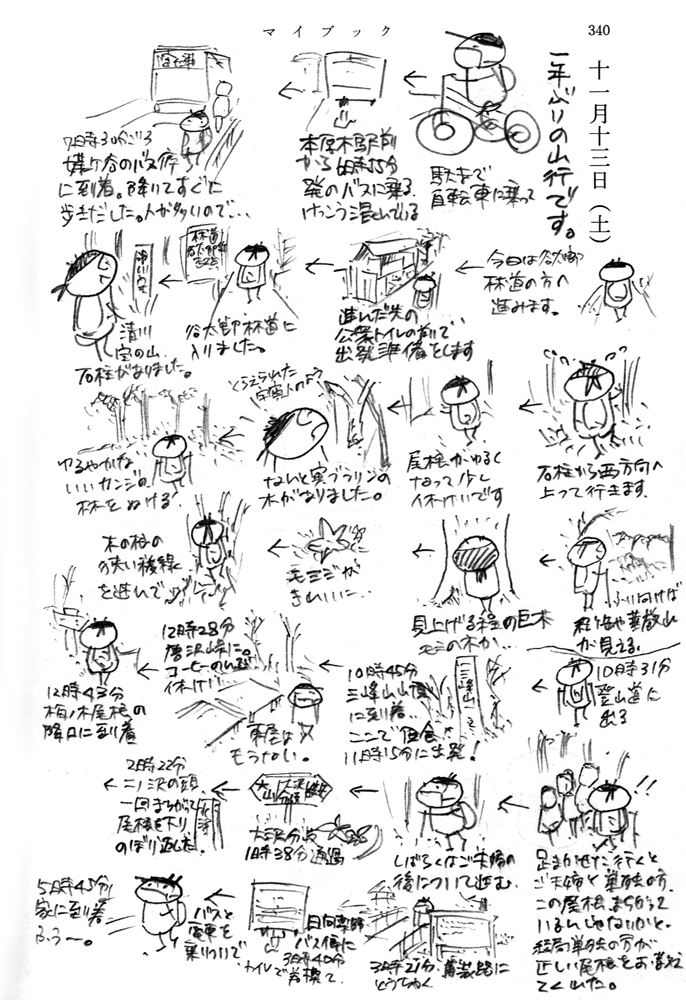 マイブック
340
十一月十三日(土)
一年ぶりの山行です。
駅まで
自転車に乗って
本厚木駅前
から6時55分
発のバスに乗る
けっこう混んでいる
7時30分ごろ
煤ヶ谷のバス停
に到着。降りてすぐに
歩きだした。人が多いので…
今日は谷太郎
林道の方へ
進みます。
進んだ先の
公衆トイレの前で…
出発準備をします
林道
谷太郎林道に
入りました。
清川
宝の山
石柱がありました。
石柱から西方向へ
上って行きます。
尾根がゆるく
なって少し
休けいです
とらえられた
宇宙人のよう
ないと実ブラリンの
木がありました。
ゆるやかな
いいカンジの
林をぬける
ふり向けば
が見える。
見上げる程の巨木
モミの木か…
モミジが
きれいに…
木の根の
狭い稜線
を進んで
10時31分
登山道に
出る
三峰山
10時45分
三峰山山頂
に到着…
ここで昼食
11時15分に出発!
12時28分
唐沢峠に。
コーヒーのんで
休けい
東屋は
もうない。
12時43分
柏ノ木尾根の
降口に到着
!!
足まかせに行くと
ご夫婦と単独の方。
この尾根まちがって
いるんじゃないかと。
結局単独の方が
正しい尾根をお教え
てくれた。
しばらくはご夫婦の
後について進む。
大山
大沢
分岐
大沢分岐
1時38分通過
2時22分
二ノ沢の頭
一回まちがって
尾根を下り
のぼり返した。
3時21分
とうちゃく
日向薬師
バス停に
3時40分
トイレで着換て
バスと
電車を
乗りついで
5時45分
家に到着
ふう〜。